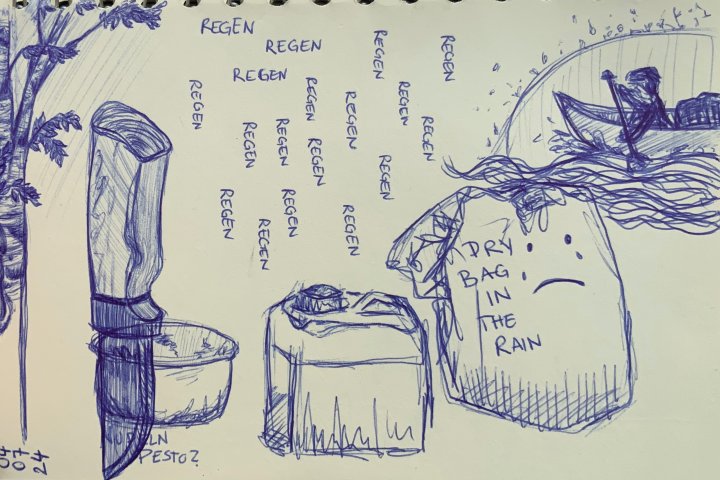 REGEN
REGEN
REGEN
REGEN
REGEN
REGEN
REGEN
REGEN
REGEN
REGEN
REGEN
REGEN
REGEN
REGEN
REGEN
REGEN
REGEN
REGEN
DRY
BAG
IN
THE
RAIN
NUDELN
PESTO?
04
07
24